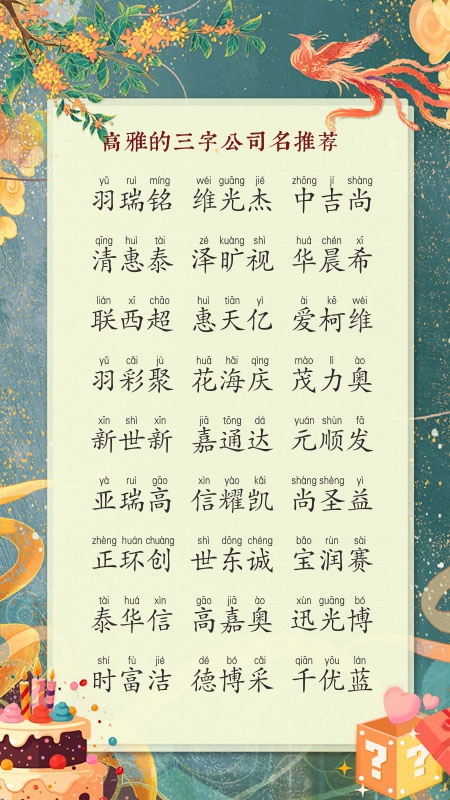 高雅的三字公司名推荐
yǔ ruì míng wéi guāng jié zhōng jí shàng
羽瑞铭 维光杰 中吉尚
qīng huì tài zé kuàng shì huá chén xī
清惠泰 泽旷视 华晨希
lián xī chāo huì tiān yì ài kē wéi
联西超 惠天亿 爱柯维
yǔ cǎi jù huā hǎi qìng mào lì ào
羽彩聚 花海庆 茂力奥
xīn shì xīn jiā tōng dá yuán shùn fā
新世新 嘉通达 元顺发
yà ruì gāo xìn yào kǎi shàng shèng yì
亚瑞高 信耀凯 尚圣益
zhèng huán chuàng shì dōng chéng bǎo rùn sài
正环创 世东诚 宝润赛
tài huá xìn gāo jiā ào xùn guāng bó
泰华信 高嘉奥 迅光博
shí fù jié dé bó cǎi qiān yōu lán
时富洁 德博采 千优蓝
? ?